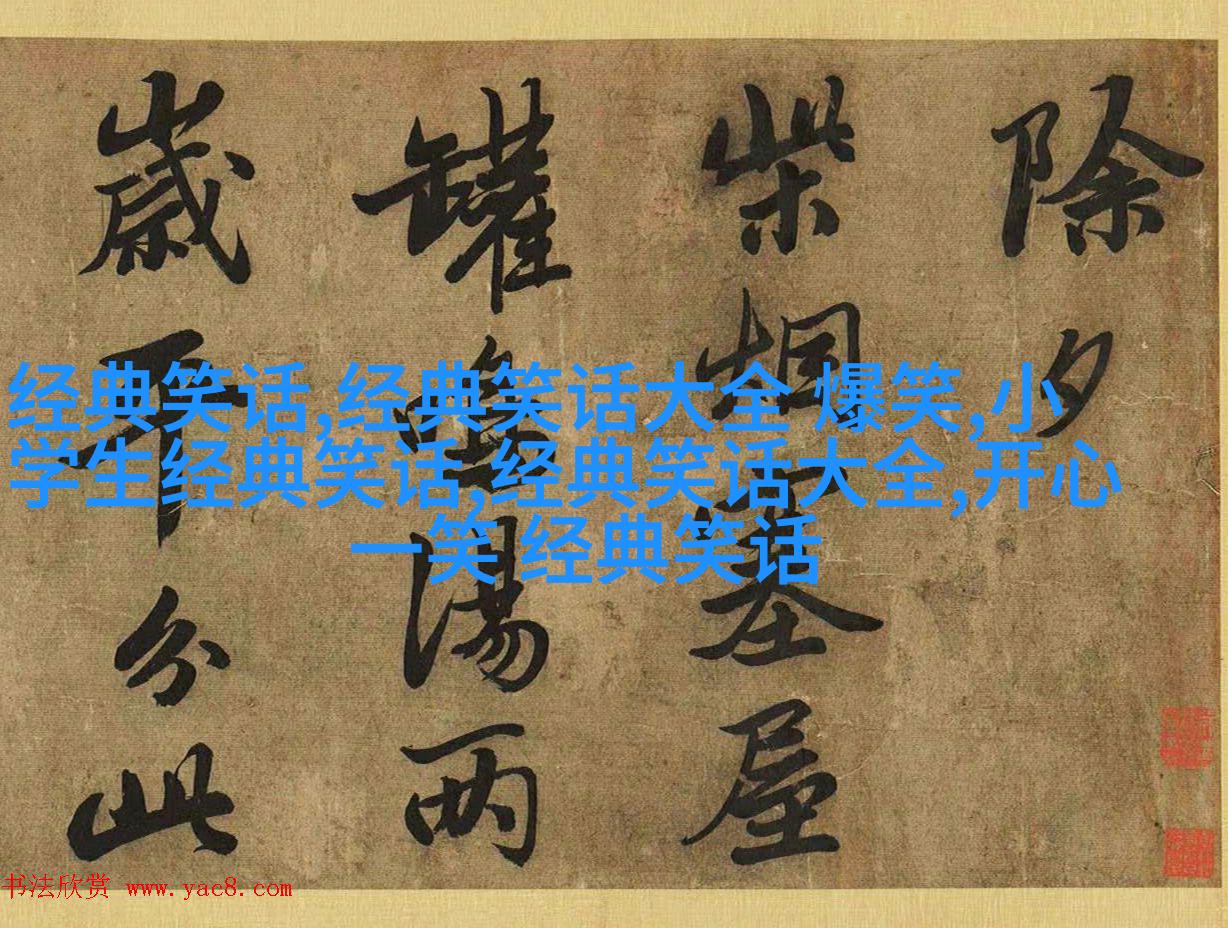 除夕
柴烟塞屋
罐鳴湯兩
歲平分此
经典笑话,经典笑话大全 爆笑,小
学生经典笑话,经典笑话大全,开心
一笑 经典笑话
书法欣赏 www.yac8.com